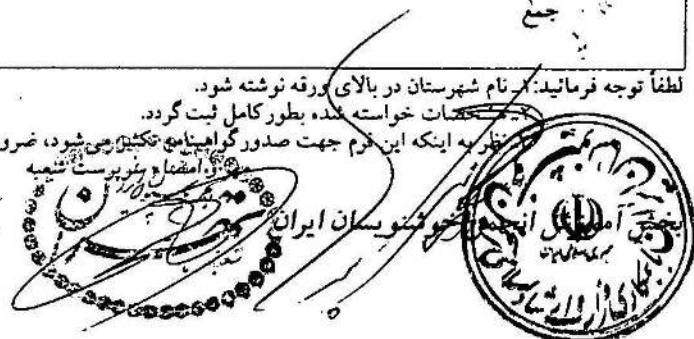 جمع
لطفاً توجه فرمائید: ۱ـ نام شهرستان در بالای ورقه نوشته شود.
۲ـ مشخصات خواسته شده بطور کامل ثبت گردد.
نظر به اینکه این فرم جهت صدور گواهینامه تکثیر می‌شود، ضرو
امضاء سرپرست شعبه
بخش آموزش انجمن خوشنویسان ایران